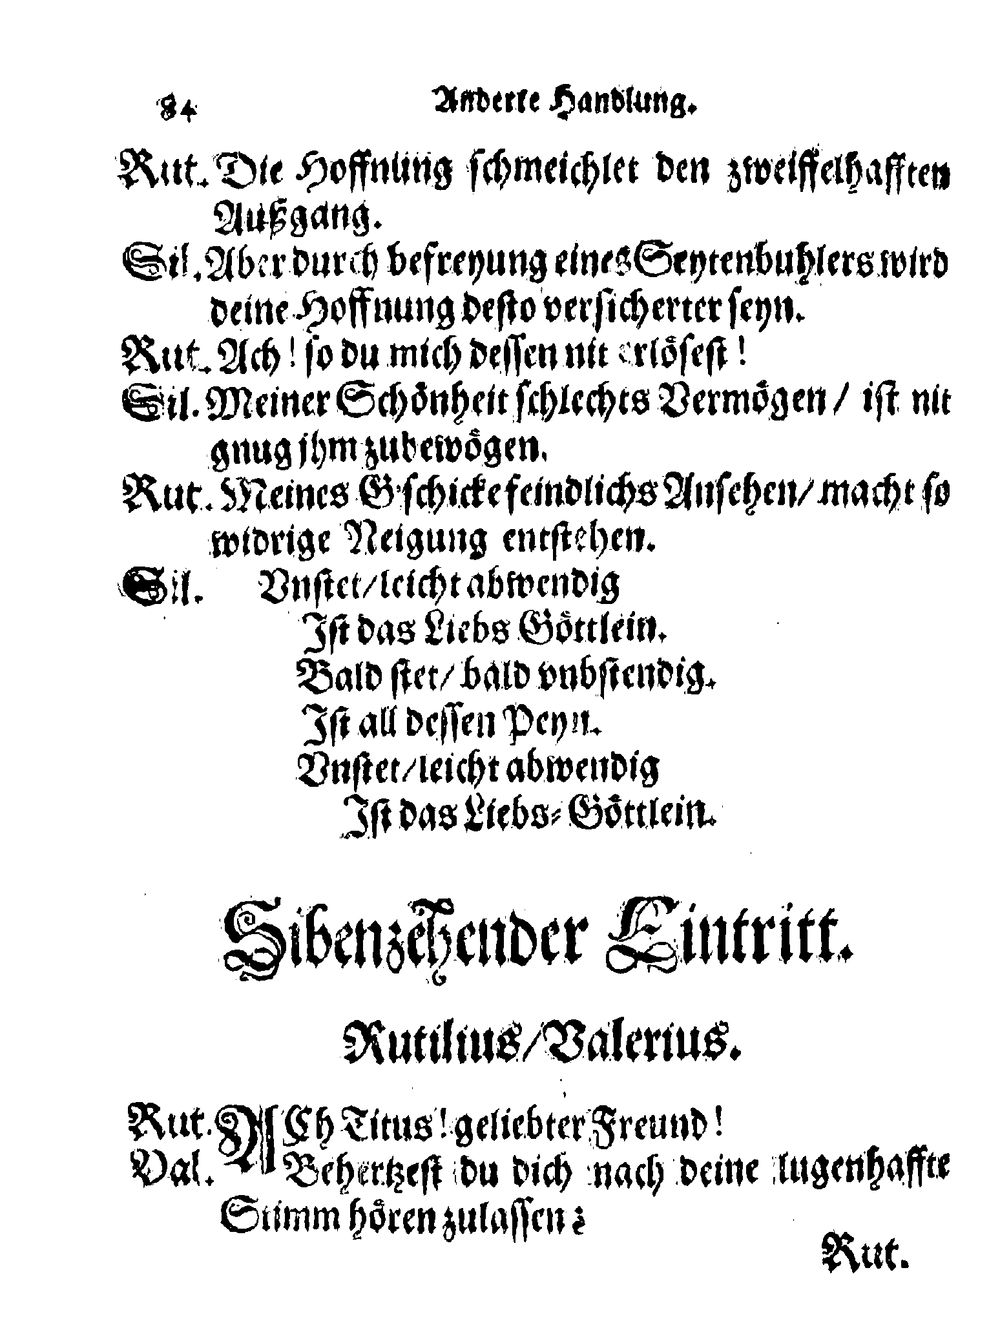 84 Anderte Handlung.
Rut. Die Hoffnung schmeichlet den zweiffelhafften
Außgang.
Sil. Aber durch befreyung eines Seytenbuhlers wird
deine Hoffnung desto versicherter seyn.
Rut. Ach! so du mich dessen nit erlösest!
Sil. Meiner Schönheit schlechts Vermögen / ist nit
gnug jhm zubewögen.
Rut. Meines G'schicke feindlichs Ansehen / macht so
widrige Neigung entstehen.
Sil. Vnstet / leicht abwendig
Ist das Liebs Göttlein.
Bald stet / bald vnbstendig.
Ist all dessen Peyn.
Vnstet / leicht abwendig
Ist das Liebs-Göttlein.
Sibenzehender Eintritt.
Rutilius / Valerius.
Rut. ACh Titus! geliebter Freund!
Val. Behertzest du dich nach deine lugenhaffte
Stimm hören zulassen?
Rut.